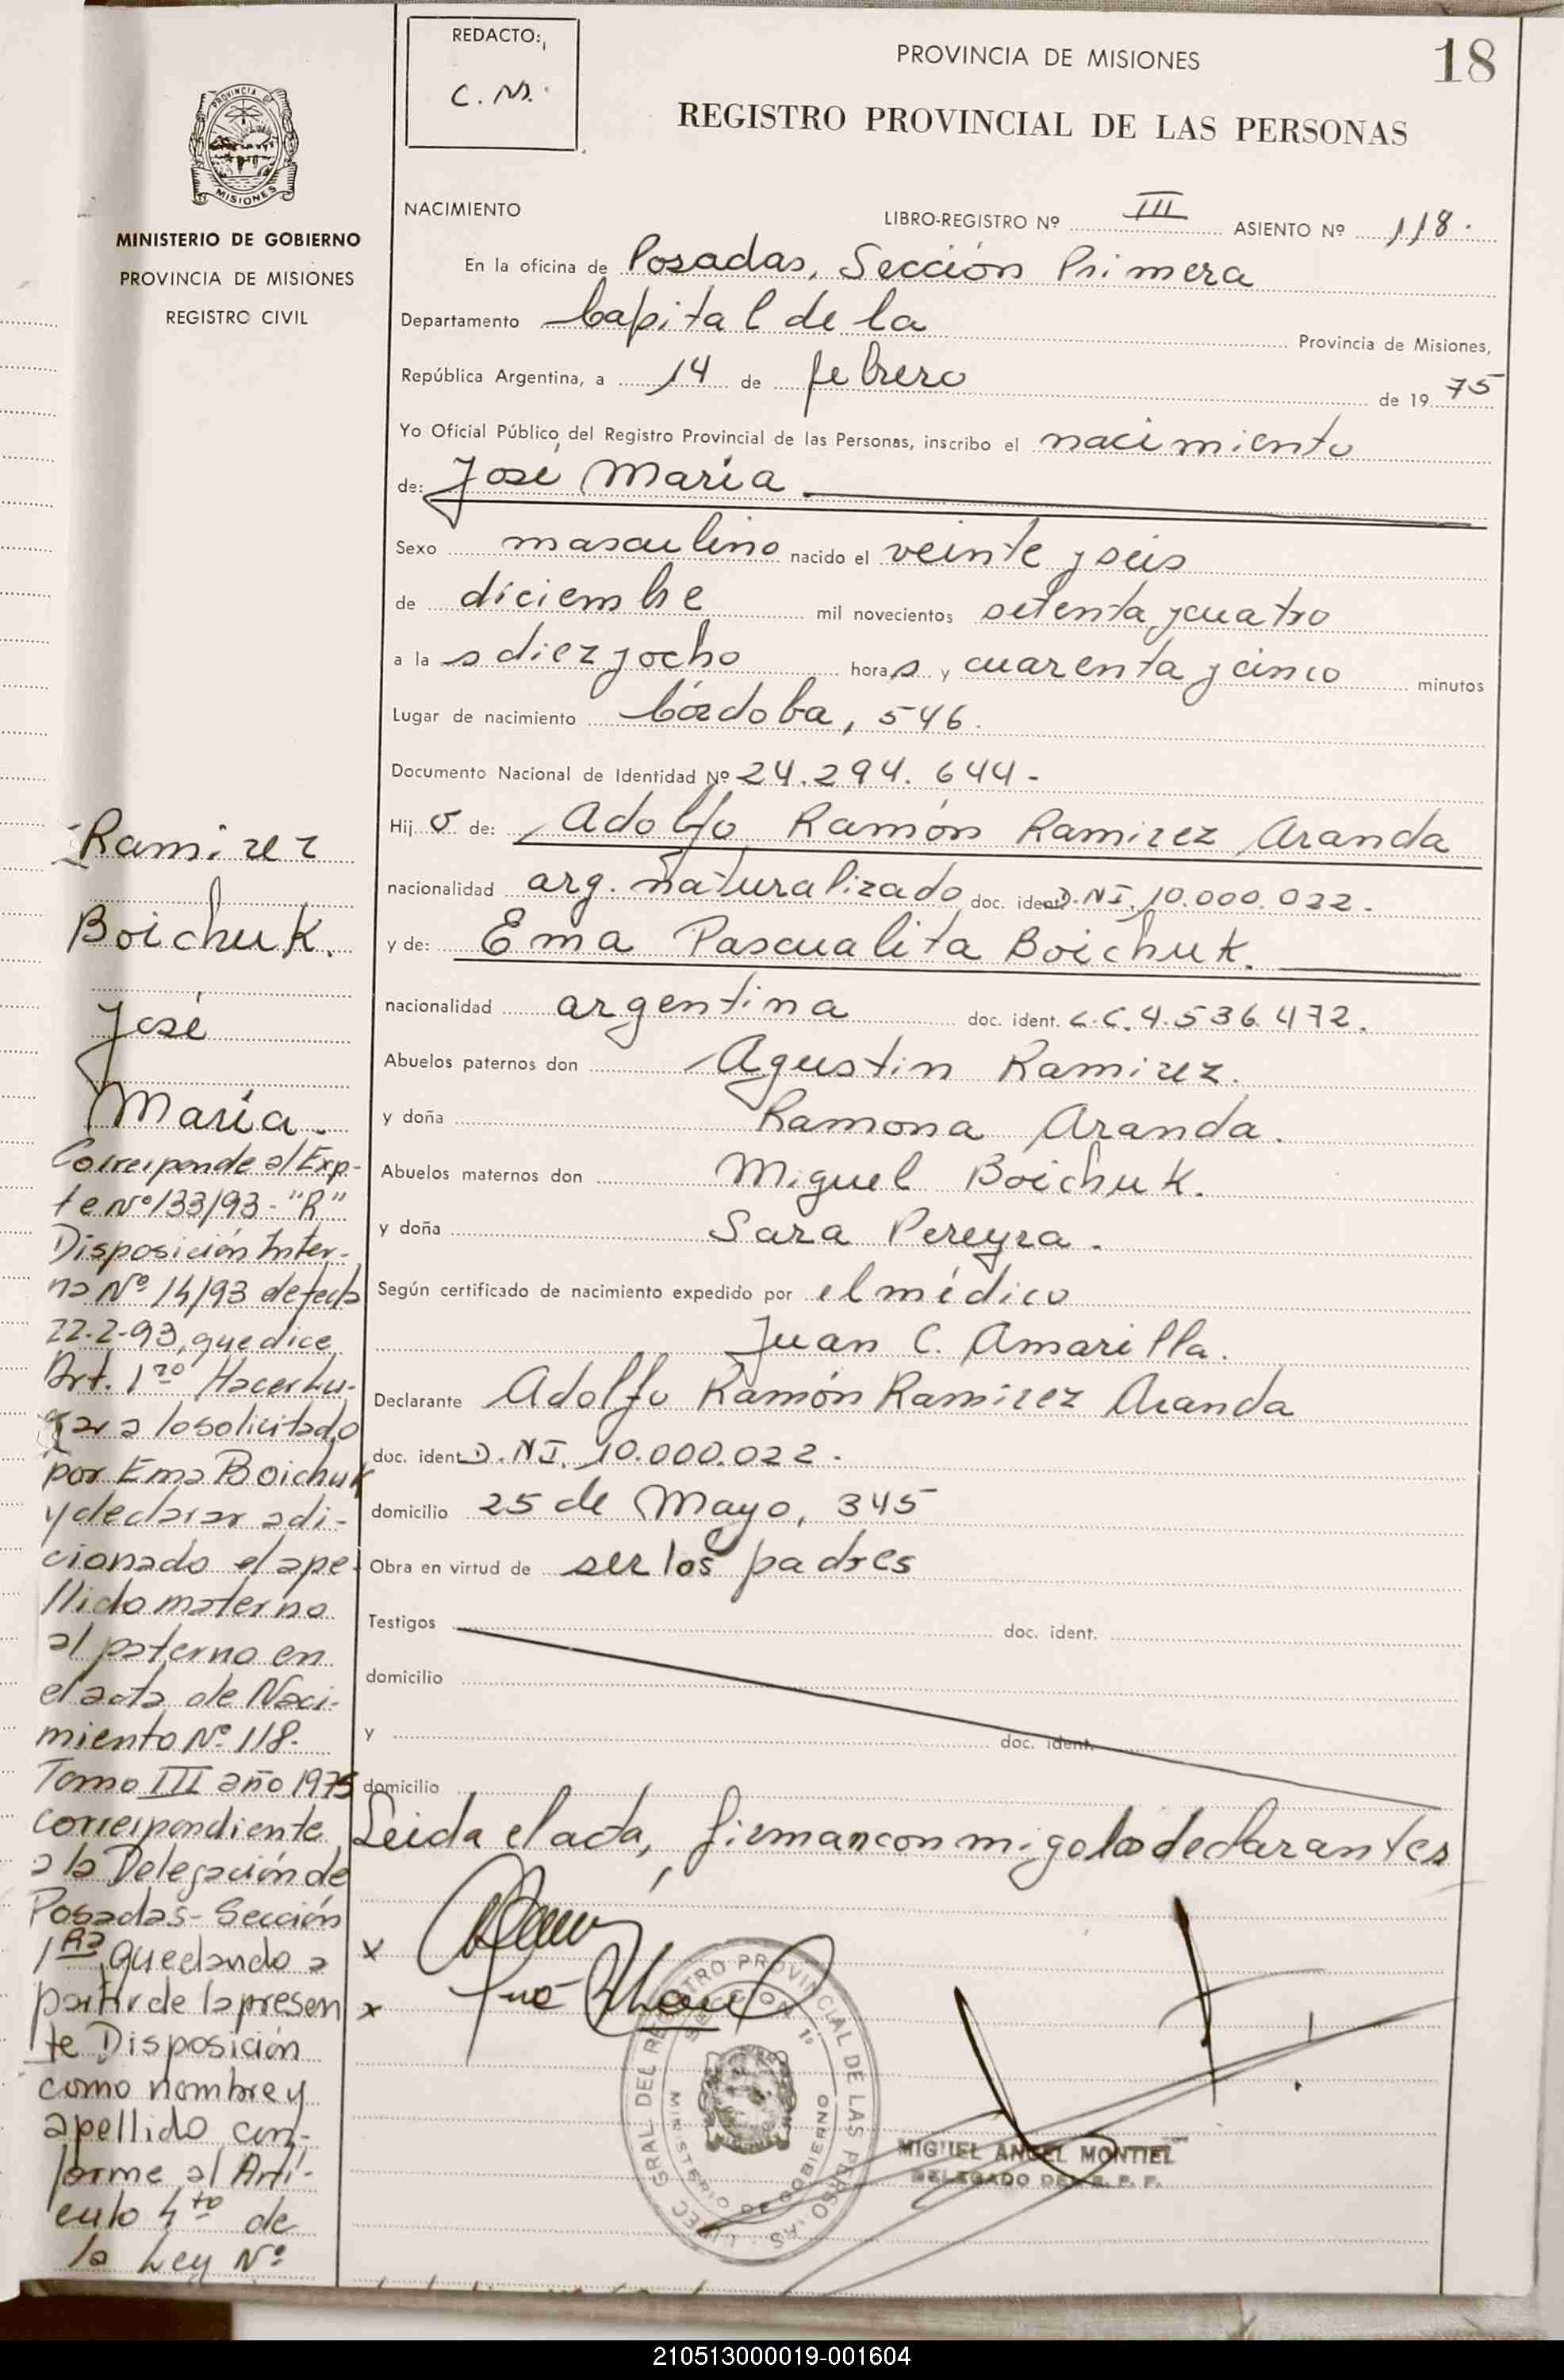 REDACTO:
C. M.
PROVINCIA DE MISIONES
18
REGISTRO PROVINCIAL DE LAS PERSONAS
PROVINCIA DE
MISIONES
MINISTERIO DE GOBIERNO
PROVINCIA DE MISIONES
REGISTRO CIVIL
NACIMIENTO
LIBRO-REGISTRO Nº III ASIENTO Nº 118.
En la oficina de Posadas, Sección Primera
Departamento Capital de la Provincia de Misiones,
República Argentina, a 14 de febrero de 1975
Yo Oficial Público del Registro Provincial de las Personas, inscribo el nacimiento
de: José María
Sexo masculino nacido el veinte y seis
de diciembre mil novecientos setenta y cuatro
a las diez y ocho horas y cuarenta y cinco minutos
Lugar de nacimiento Córdoba, 546.
Documento Nacional de Identidad Nº 24.294.644-
Hijo de: Adolfo Ramón Ramirez Aranda
nacionalidad arg. naturalizado doc. ident. D.N.I. 10.000.022.
y de: Ema Pascualita Boichuk.
nacionalidad argentina doc. ident. L.C. 4.536.472.
Abuelos paternos don Agustin Ramirez.
y doña Ramona Aranda.
Abuelos maternos don Miguel Boichuk.
y doña Sara Pereyra.
Según certificado de nacimiento expedido por el médico
Juan C. Amarilla.
Declarante Adolfo Ramón Ramirez Aranda
doc. ident D.N.I. 10.000.022.
domicilio 25 de Mayo, 345
Obra en virtud de ser los padres
Testigos doc. ident.
domicilio
y doc. ident.
domicilio
Leida el acta, firman con migo los declarantes
x
x
MIGUEL ANGEL MONTIEL
DELEGADO DEL R. P. P.
DIREC. GRAL. DEL REGISTRO PROVINCIAL DE LAS PERSONAS
SECCION 1º
MINISTERIO DE GOBIERNO
Ramirez
Boichuk.
José
María.
Corresponde al Exp-
te Nº 133/93-"R"
Disposición Inter-
na Nº 14/93 de fecha
22-2-93, que dice
Art. 1ro Hacer lu-
gar a lo solicitado
por Ema Boichuk
y declarar adi-
cionado el ape-
llido materno
al paterno en
el acta de Naci-
miento Nº 118-
Tomo III año 1975
correspondiente
a la Delegación de
Posadas- Sección
1ra quedando a
partir de la presen
te Disposición
como nombre y
apellido con-
forme al Artí-
culo 4to de
la Ley Nº
210513000019-001604